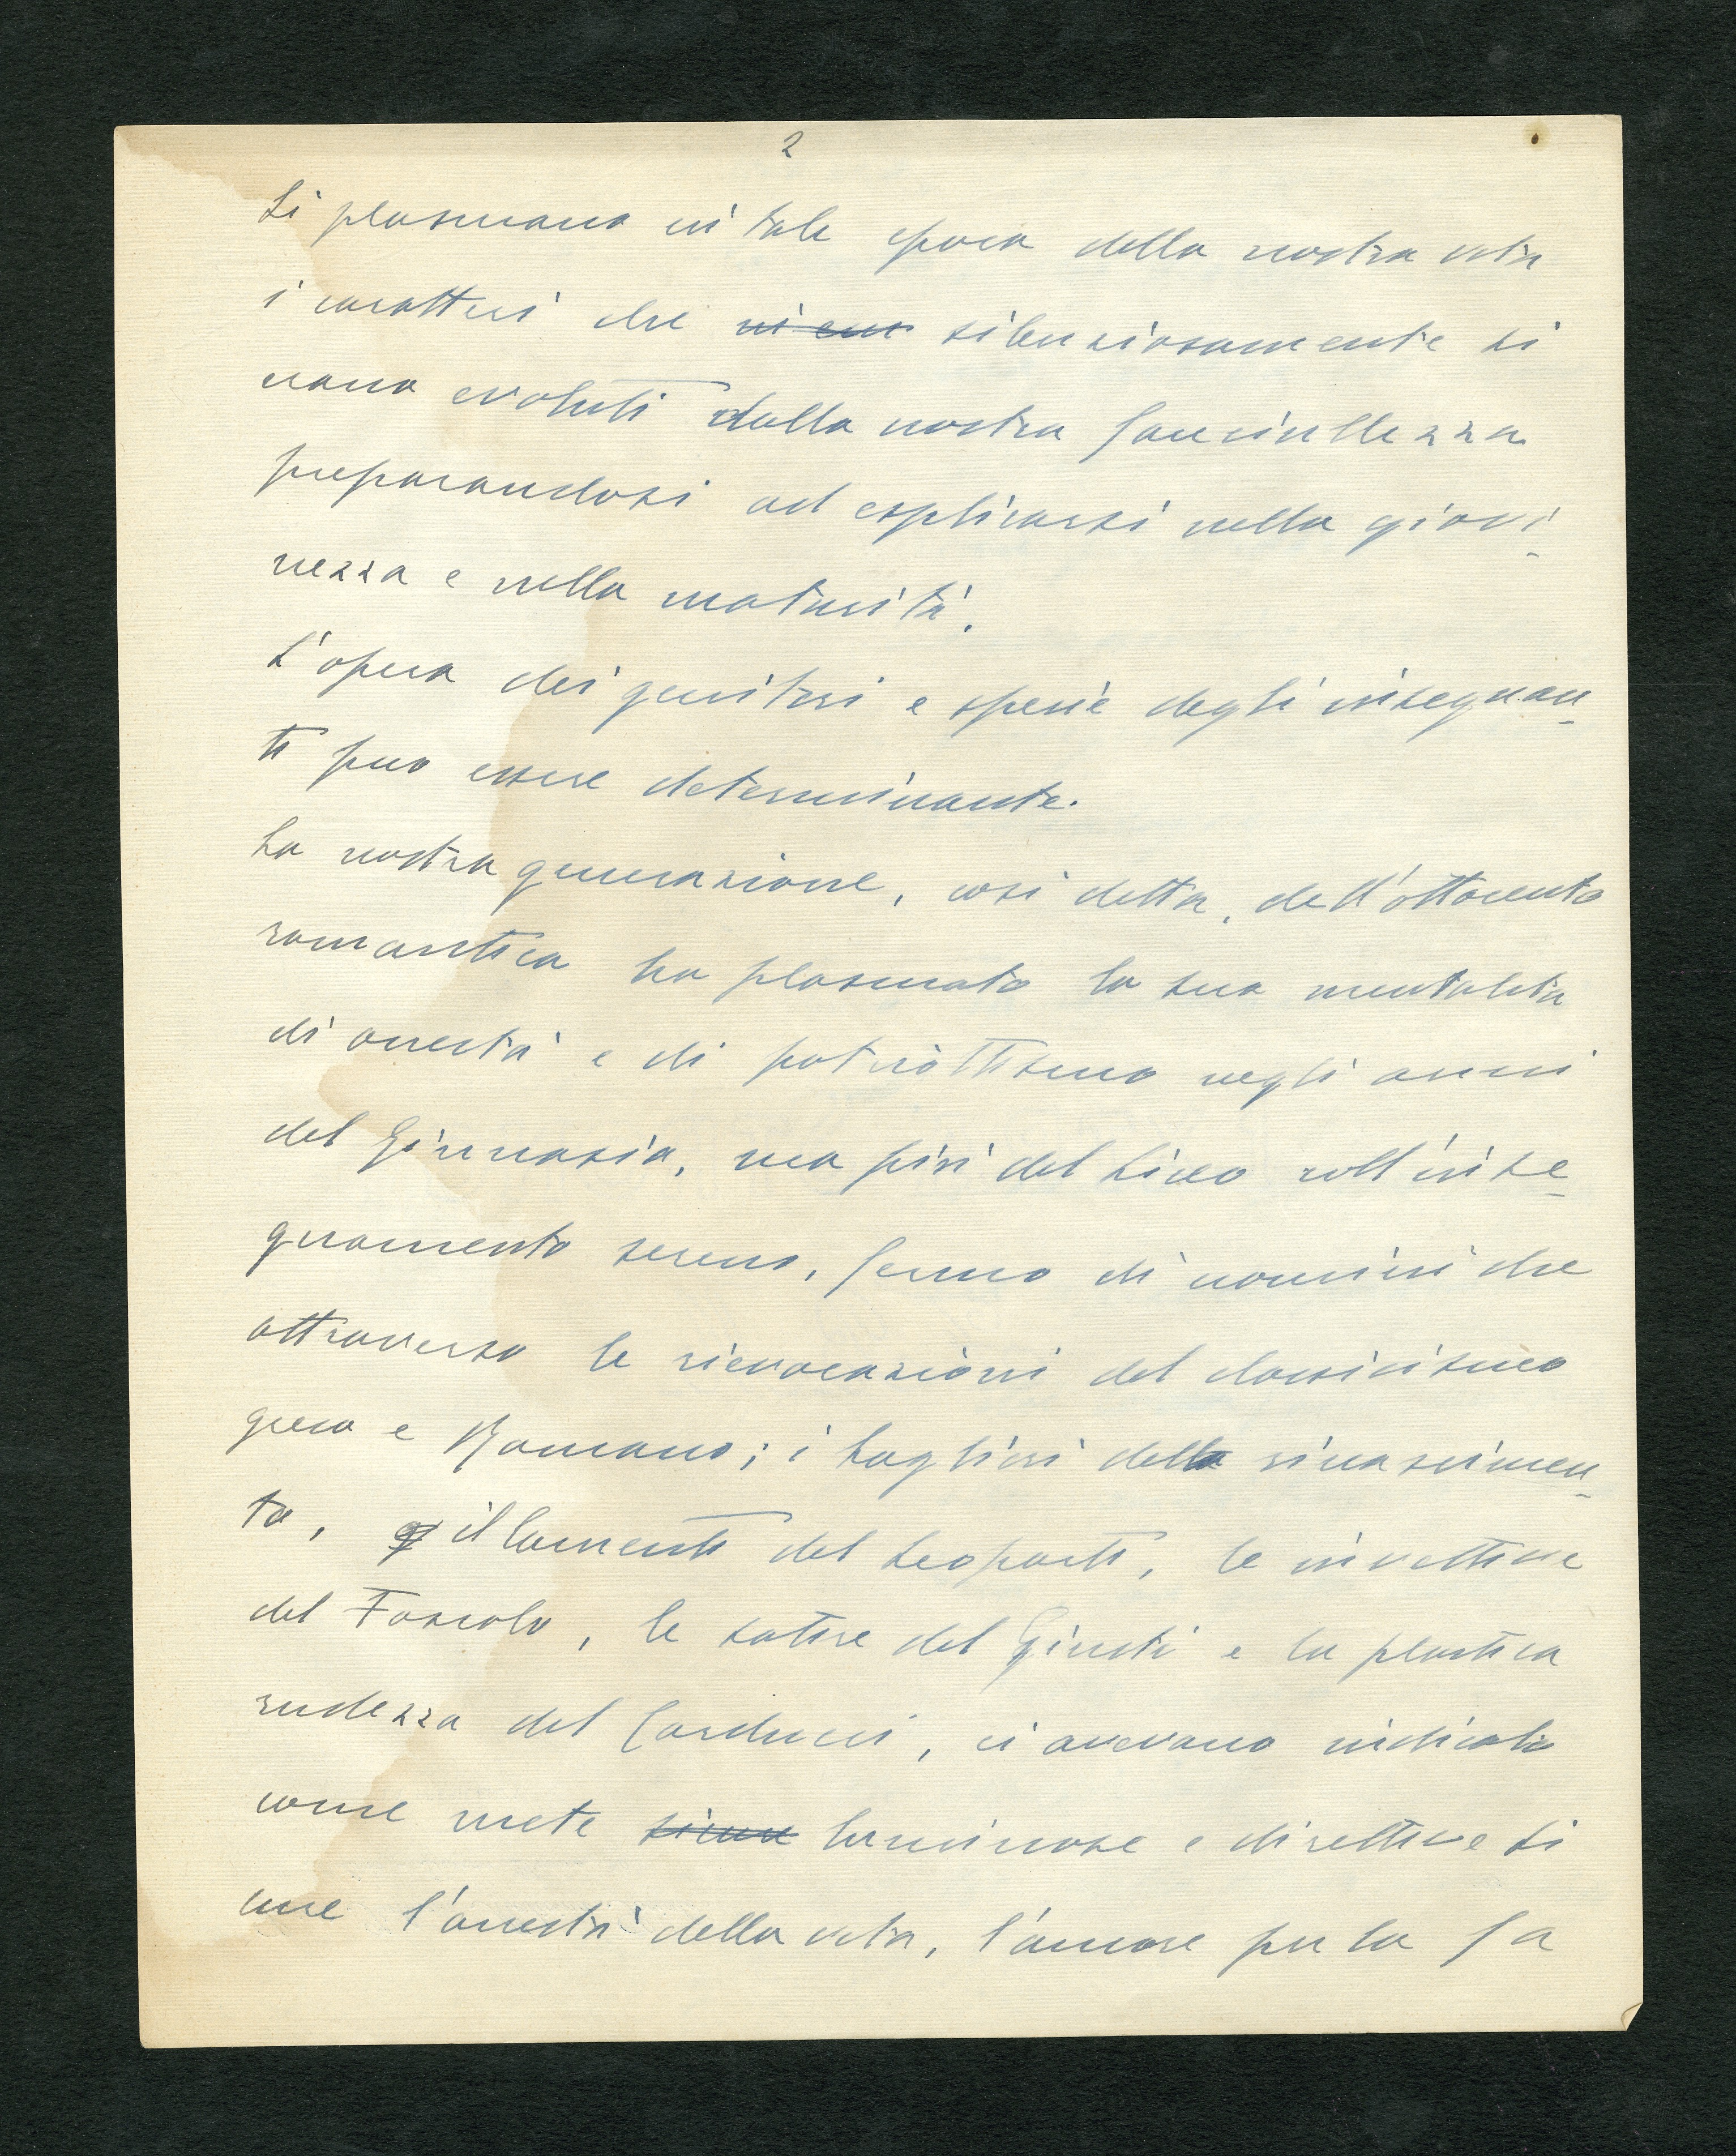 2
Si plasmano in tale epoca della nostra vita
i caratteri che silenziosamente si
erano evoluti dalla nostra fanciullezza
preparandosi ad esplicarsi nella giovi-
nezza e nella maturità.
L'opera dei genitori e specie degli insegnan-
ti puo essere determinante.
La nostra generazione, cosi detta, dell'ottocento
romantica ha plasmato la sua mentalita
di onestà e di patriottismo negli anni
del Ginnasio, ma più del Liceo nell'inse-
gnamento sereno, fermo di uomini che
attraverso le rievocazioni del classicismo
greco e Romano; i bagliori della rinascimen-
to, il lamenti del Leopardi, le invettive
del Foscolo, le satire del Giusti e la plastica
rudezza del Carducci, ci avevano indicato
come mete luminose e direttive si
cure l'onestà della vita, l'amore per la fa